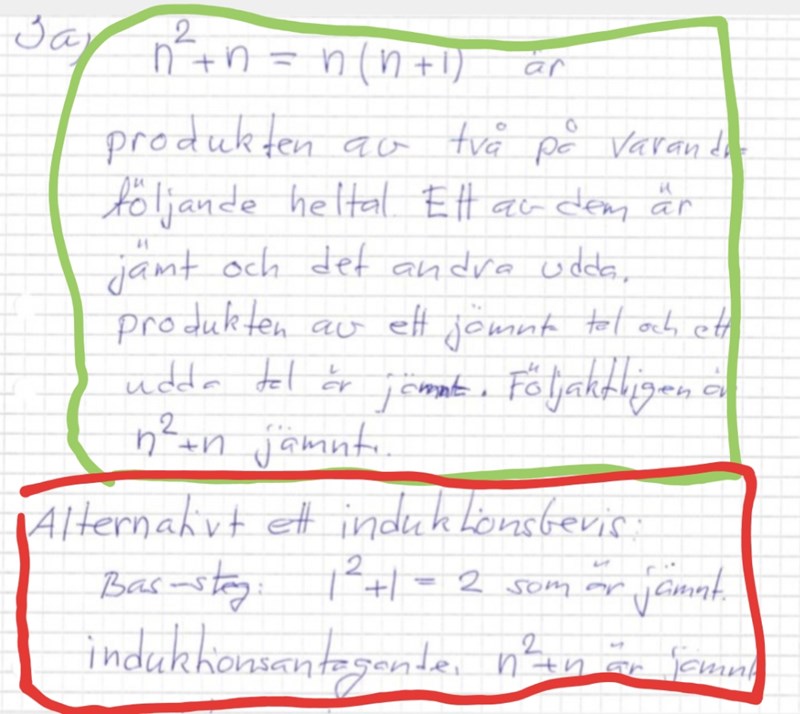 3a)
n²+n = n(n+1) är
produkten av två på varand
följande heltal Ett av dem är
jämt och det andra udda.
produkten av ett jämnt tal och ett
udda tal är jämnt. Följaktligen är
n²+n jämnt.
Alternativt ett induktionsbevis:
Bas-steg: 1²+1 = 2 som är jämnt.
induktionsantagande. n²+n är jämnt